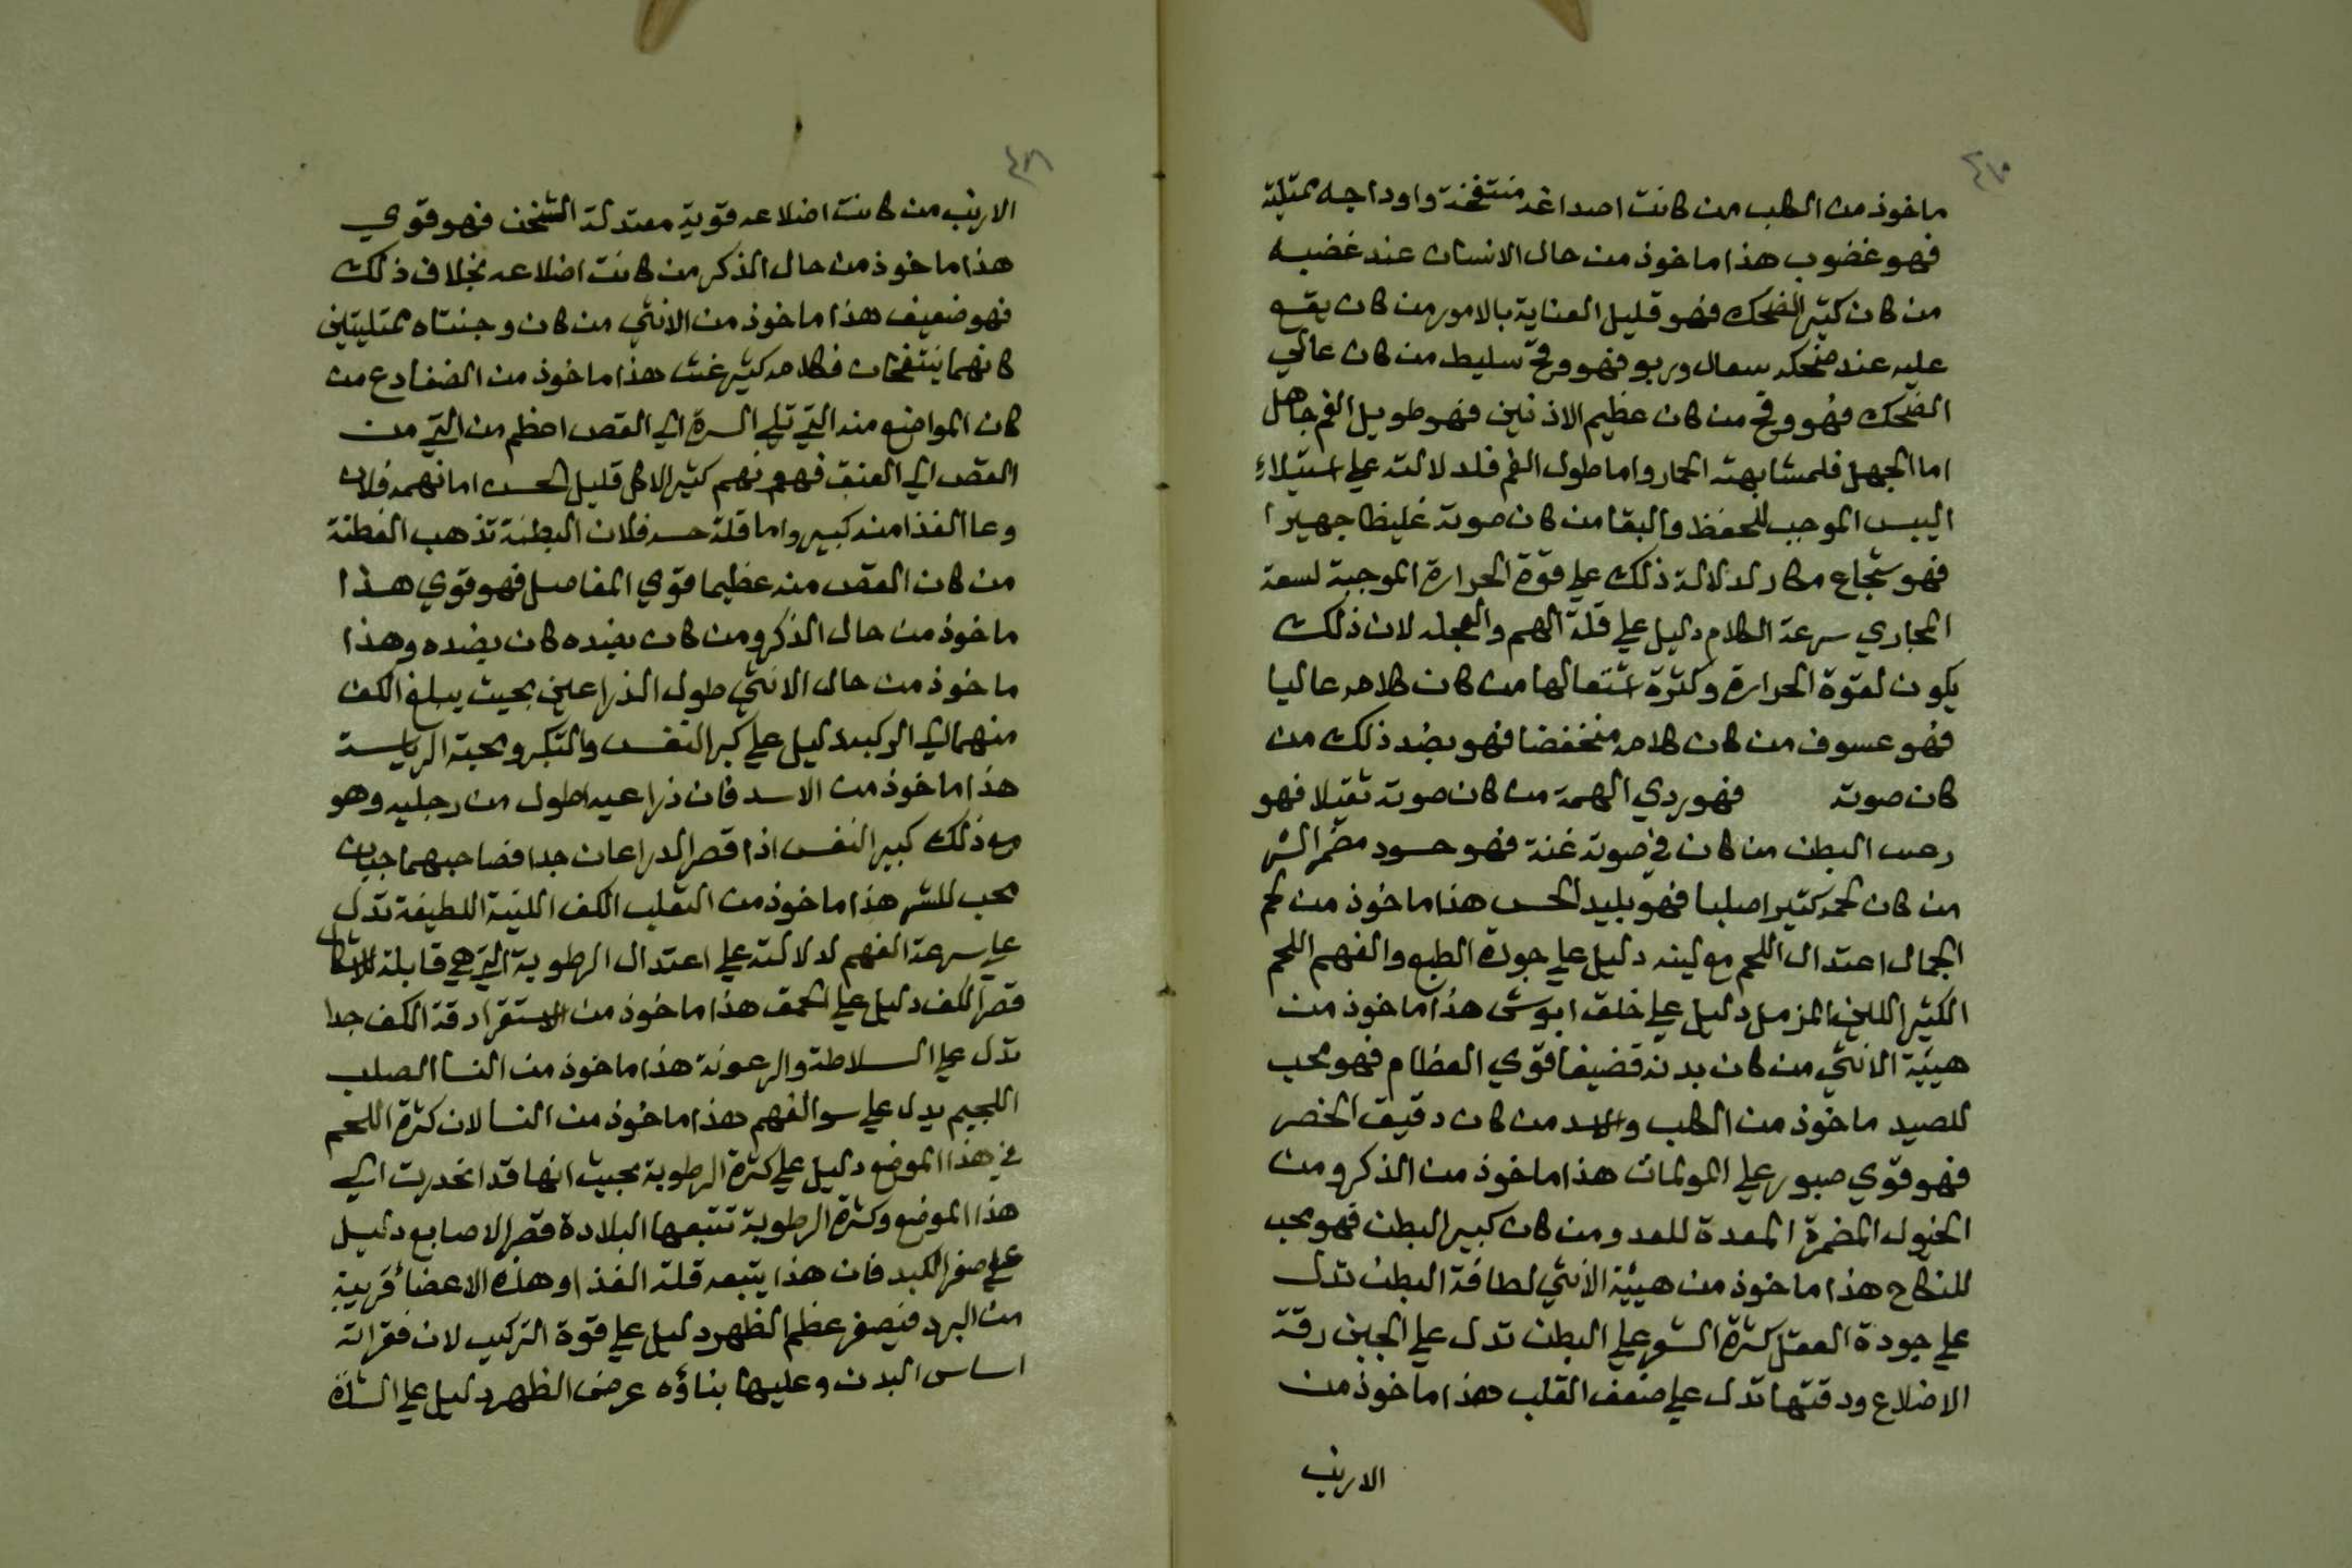 ماخوذ من الكلب من كانت اصداغه منتفخة واوداجه ممتلية
فهو غضوب هذا ماخوذ من حال الانسان عند غضبه
من كان كثير الضحك فهو قليل العناية بالامور من كان يقع
عليه عند ضحكه سعال وربو فهو وقح سليط من كان عالي
الضحك فهو وقح من كان عظيم الاذنين فهو طويل العم جاهل
اما الجهل فلمشابهته الحمار واما طول العم فلدلالته علي استيلاء
اليبس الموجب للحفظ والبقا من كان صوته غليظا جهيرا
فهو شجاع مكار لدلالة ذلك علي قوة الحرارة الموجبة لسعة
المجاري سرعة الكلام دليل علي قلة الهم والعجلة لان ذلك
يكون لقوة الحرارة وكثرة اشتعالها من كان كلامه عاليا
فهو عسوف من كان كلامه منخفضا فهو بضد ذلك من
كان صوته فهو ردي الهمة من كان صوته ثقيلا فهو
رحب البطن من كان في صوته غنة فهو حسود مضمر الشر
من كان لحمه كثيرا صلبا فهو بليد الحس هذا ماخوذ من لحم
الجمال اعتدال اللحم مع لينه دليل علي جودة الطبع والفهم اللحم
الكثير اللين المزمل دليل علي خلق ابوشي هذا ماخوذ من
هيئة الانثي من كان بدنه قضيفا قوي العظام فهو محب
للصيد ماخوذ من الكلب والاسد من كان دقيق الخصر
فهو قوي صبور علي المولمات هذا ماخوذ من الذكر ومن
الخيول المضمرة المعدة للعدو من كان كبير البطن فهو محب
للنكاح هذا ماخوذ من هيئة الانثي لطافة البطن تدل
علي جودة العقل كثرة الشعر علي البطن تدل علي الجبن رقة
الاضلاع ودقتها تدل علي ضعف القلب هذا ماخوذ من
الارنب
الارنب من كانت اضلاعه قوية معتدلة الثخن فهو قوي
هذا ماخوذ من حال الذكر من كانت اضلاعه بخلاف ذلك
فهو ضعيف هذا ماخوذ من الانثي من كان وجنتاه ممتليتين
كانهما ينتفخان فكلامه كثير غث هذا ماخوذ من الضفادع من
كان المواضع منه التي تلي السرة الي القص اعظم من التي من
القص الي العنق فهو نهم كثير الاكل قليل الحس اما نهمه فلان
وعا الغذا منه كبير واما قلة حسه فلان البطنة تذهب الفطنة
من كان القص منه عظيما قوي المفاصل فهو قوي هذا
ماخوذ من حال الذكر ومن كان بضده كان بضده وهذا
ماخوذ من حال الانثي طول الذراعين بحيث يبلغ الكف
منهما الي الركبة دليل علي كبر النفس والتكبر ومحبة الرياسة
هذا ماخوذ من الاسد فان ذراعيه اطول من رجليه وهو
مع ذلك كبير النفس اذا قصر الدراعان جدا فصاحبهما جبان
محب للشر هذا ماخوذ من الثعلب الكف اللينة اللطيفة تدل
علي سرعة الفهم لدلالته علي اعتدال الرطوبة التي هي قابلة للاشكال
قصر الكف دليل علي الحمق هذا ماخوذ من الاستقرا دقة الكف جدا
تدل علي السلاطة والرعونة هذا ماخوذ من النسا الصلب
اللحيم يدل علي سو الفهم هذا ماخوذ من النسا لان كثرة اللحم
في هذا الموضع دليل علي كثرة الرطوبة بحيث انها قد انحدرت الي
هذا الموضع وكثرة الرطوبة تتبعها البلادة قصر الاصابع دليل
علي صغر الكبد فان هذا يتبعه قلة الغذا وهذه الاعضا قريبة
من البرد فيصغر عظم الظهر دليل علي قوة التركيب لان فقراته
اساس البدن وعليها بناؤه عرض الظهر دليل علي الشدة